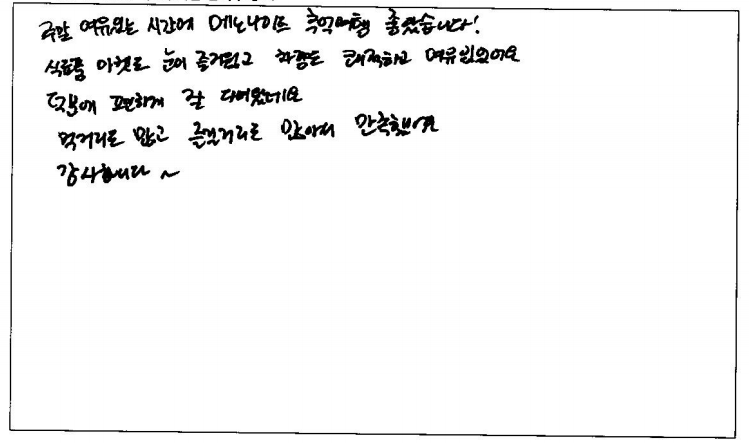 주말 여유있는 시간에 메노나이트 추억여행 좋았습니다!
식료품 마켓도 눈이 즐거웠고 차량도 쾌적하고 여유있었어요
덕분에 편하게 잘 다녀왔네요
먹거리도 많고 즐길거리도 많아서 만족했어요
감사합니다 ~